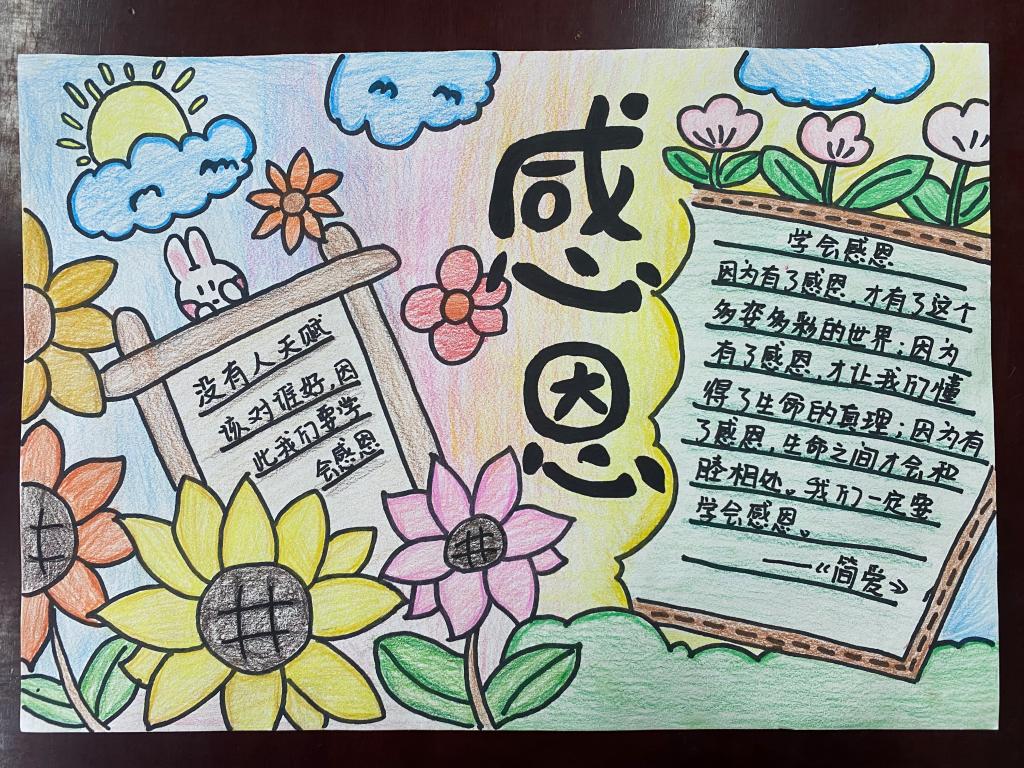 感恩
没有人天赋
该对谁好,因
此我们要学
会感恩
学会感恩
因为有了感恩,才有了这个
多姿多彩的世界;因为
有了感恩,才让我们懂
得了生命的真理;因为有
了感恩,生命之间才会和
睦相处。我们一定要
学会感恩。
——《简爱》